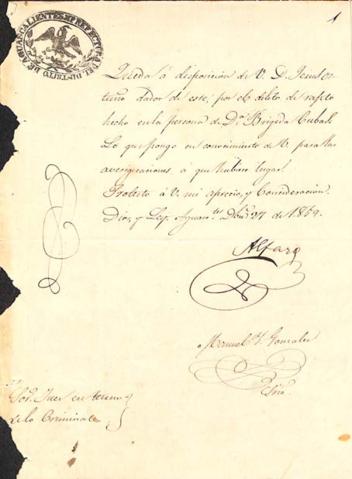 1
PREFECTURA DEL DISTRITO DE AGUASCALIENTES
Queda á disposicion de V. D. Jesus
dador de este, por el delito de rapto
hecho en la persona de Dª Brigida
Lo que pongo en conocimiento de V. para las
averiguaciones á que hubiere lugar.
Protesto á V. mi aprecio y consideracion.
Dios y Ley. Aguas.tes 27 de 1859.
Alfaro
Manuel Y. Gonzales
Srio
Sor. Juez en turno
de lo Criminal